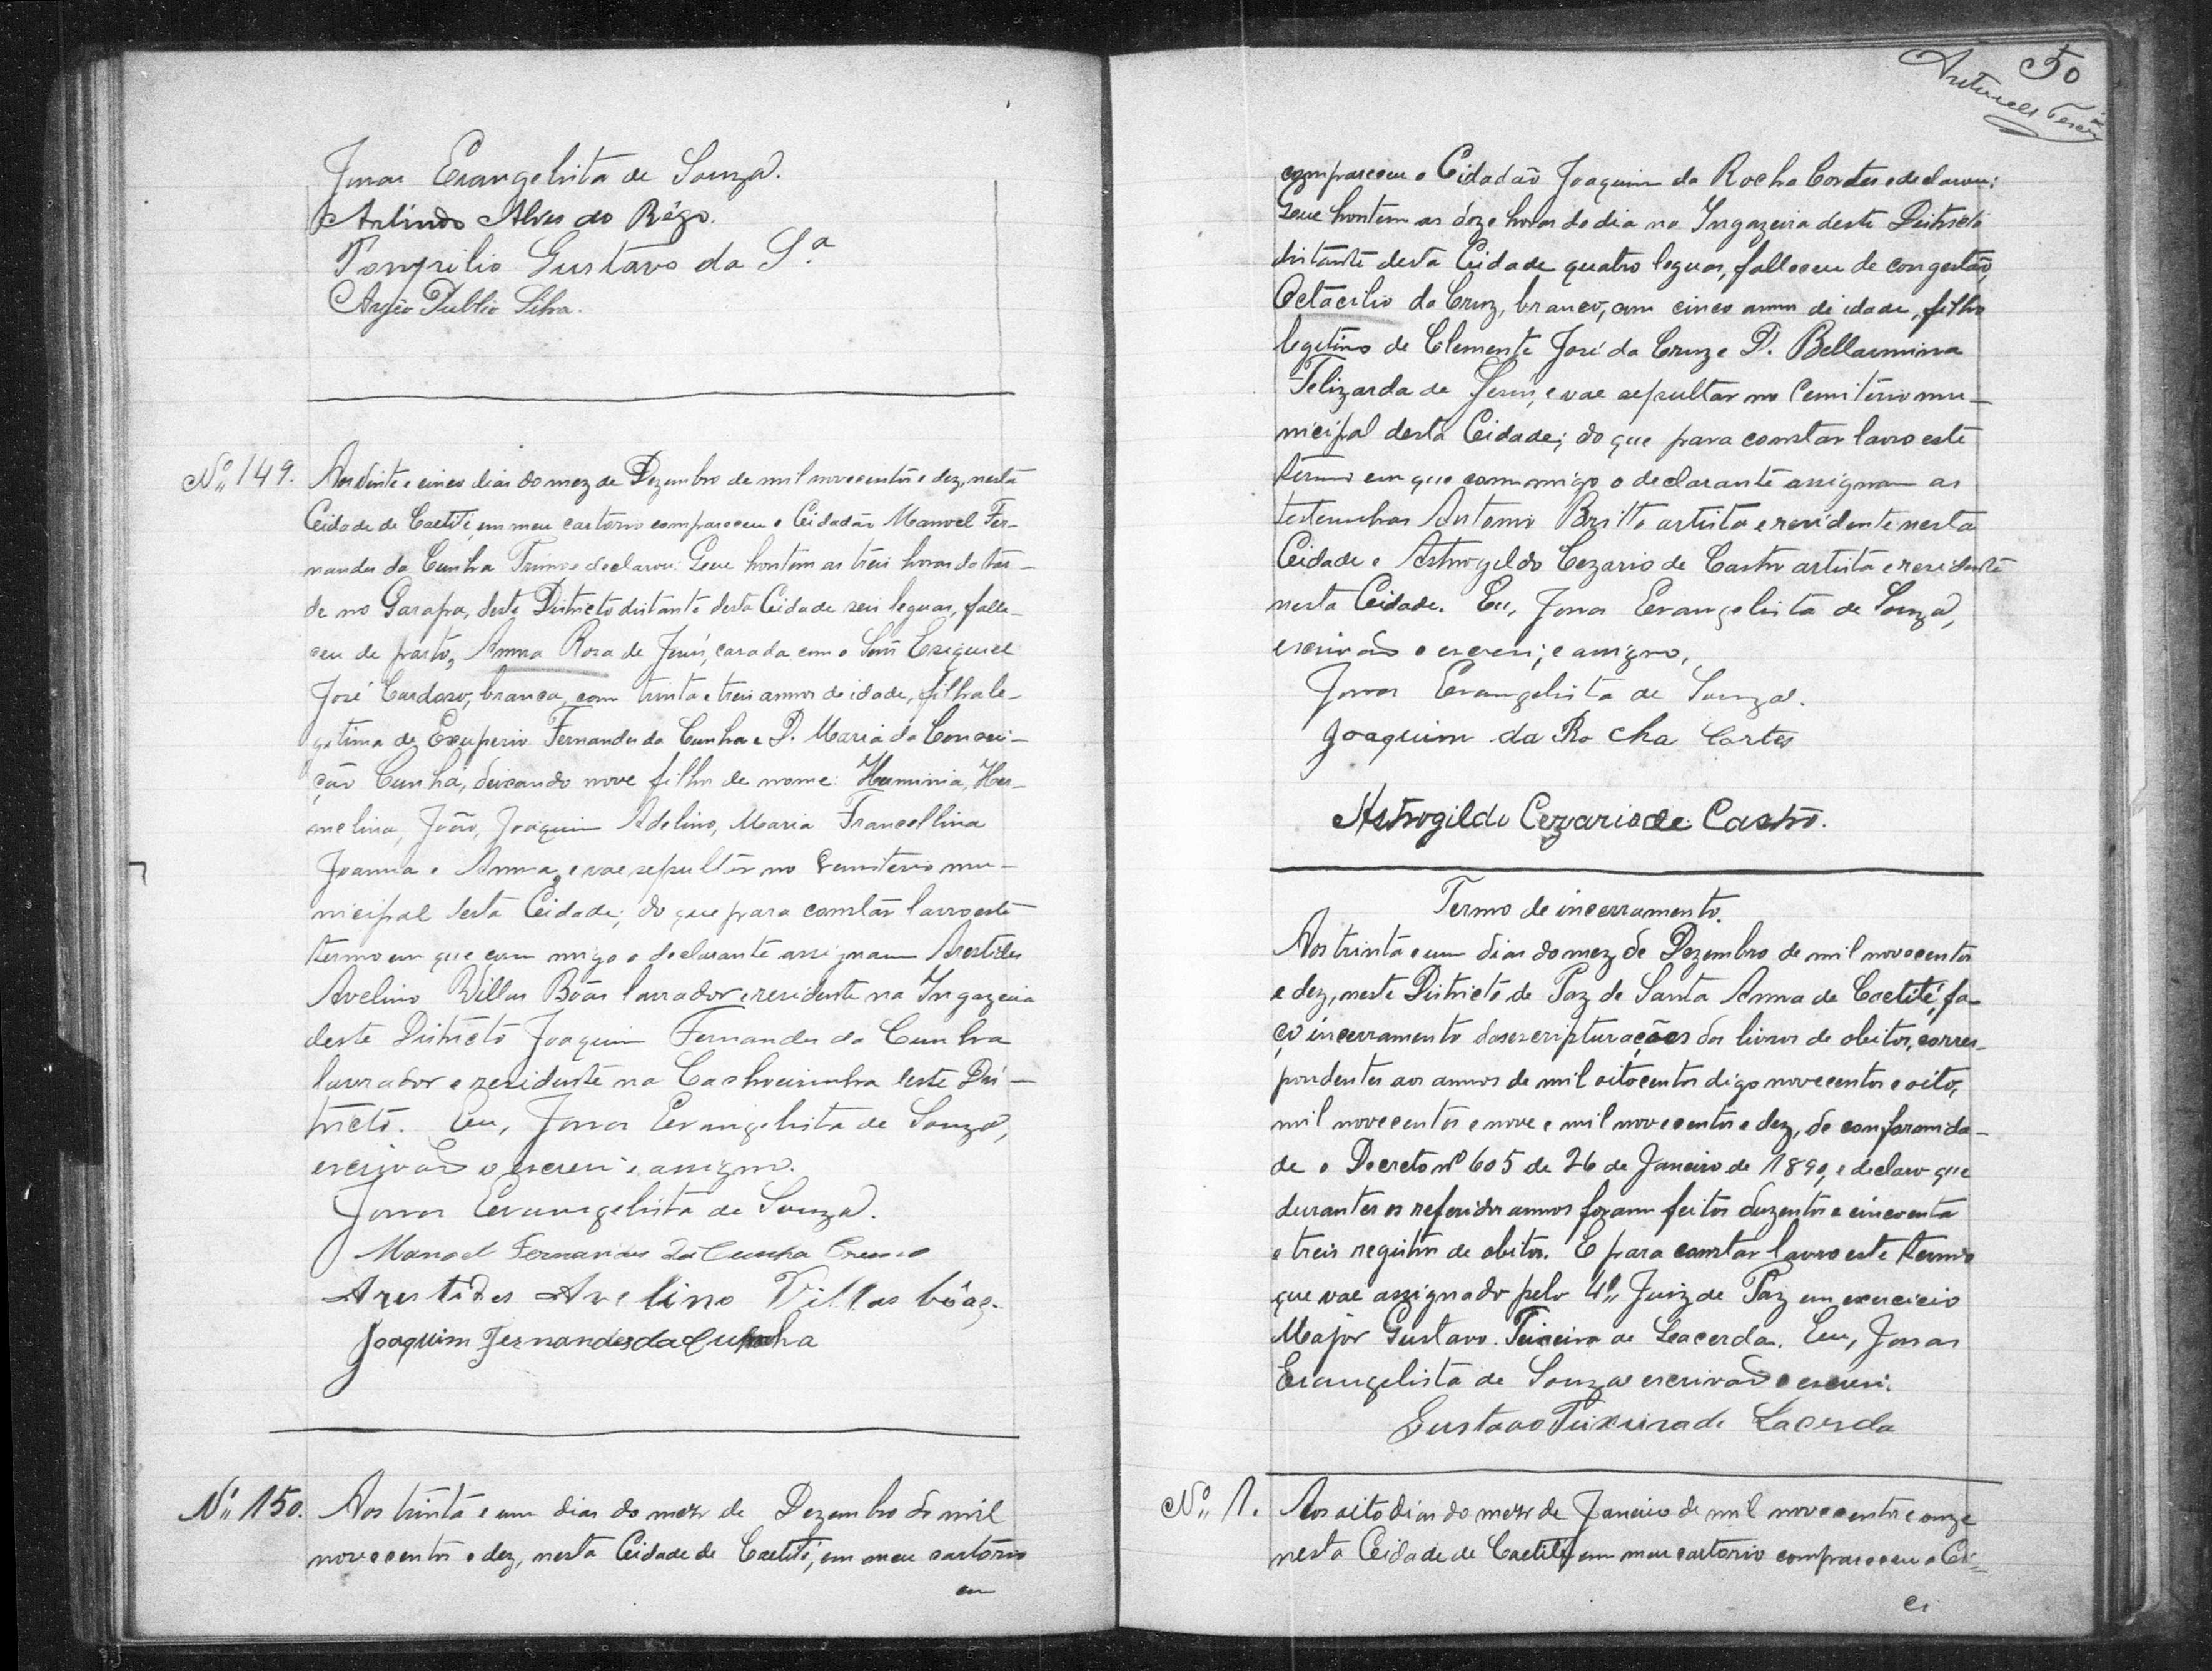 Jonas Evangelista de Souza.
Arlindo Alves do Rêgo.
Pompilio Gustavo da Sª
Argêo Publio Silva.
Nº 149. Aos vinte e cinco dias do mez de Dezembro de mil novecentos e dez, nesta
Cidade de Caetité, em meu cartorio compareceu o Cidadão Manoel Fer-
nandes da Cunha Primo e declarou: Que hontem as treis horas da tar-
de no Garapa, deste Districto distante desta Cidade seis leguas, falle-
ceu de parto, Anna Rosa de Jesús, casada com o Snr Esequiel
José Cardoso, branca, com trinta e treis annos de idade, filha le-
gitima de Exuperio Fernandes da Cunha e D. Maria da Concei-
ção Cunha, deixando nove filhos de nome: Herminia, Her-
melina, João, Joaquim Adelino, Maria Francellina
Joanna e Anna, e vae sepultar no Cemiterio mu-
nicipal desta Cidade; do que para constar lavro este
termo em que com migo o declarante assignam Arestides
Avelino Villas Bôas lavrador e residente na Ingazeira
deste Districto Joaquim Fernandes da Cunha
lavrador e residente na Cachoeirinha deste Dis-
tricto. Eu, Jonas Evangelista de Souza,
escrivão o escrevi e assigno.
Jonas Evangelista de Souza.
Manoel Fernandes da Cunha Primo
Arestides Avelino Villas bôas.
Joaquim Fernandes da Cunha
Nº 150. Aos trinta e um dias do mez de Dezembro de mil
novecentos e dez, nesta Cidade de Caetité, em meu cartorio
50
compareceu o Cidadão Joaquim da Rocha Cortes e declarou:
Que hontem as doze horas do dia na Ingazeira deste Districto
distante desta Cidade quatro leguas, falleceu de congestão,
Octacilio da Cruz, branco, com cinco annos de idade, filho
legitimo de Clemente José da Cruz e D. Bellarmina
Felizarda de Jesus, e vae sepultar no Cemitério mu-
nicipal desta Cidade; do que para constar lavro este
termo em que commigo o declarante assignam as
testemunhas Antonio Britto artista e residente nesta
Cidade e Astrogildo Cezario de Castro artista e residente
nesta Cidade. Eu, Jonas Evangelista de Souza,
escrivão o escrevi; e assigno,
Jonas Evangelista de Souza.
Joaquim da Rocha Cortes
Astrogildo Cezario de Castro.
Termo de incerramento.
Aos trinta e um dias do mez de Dezembro de mil novecentos
e dez, neste Districto de Paz de Santa Anna de Caetité, fa-
ço incerramento das escripturações dos livros de obitos, corres-
pondentes aos annos de mil oitocentos digo novecentos e oito,
mil novecentos e nove e mil novecentos e dez, de conformida-
de o Decreto nº 605 de 26 de Janeiro de 1890, e declaro que
durantes os referidos annos foram feitos duzentos e cincoenta
e treis registros de obitos. E para constar lavro este termo
que vae assignado pelo 4º Juiz de Paz em exercicio
Major Gustavo Teixeira de Lacerda. Eu, Jonas
Evangelista de Souza escrivão o escrevi.
Gustavo Teixeira de Lacerda
Nº 1. Aos oito dias do mez de Janeiro de mil novecentos e onze
nesta Cidade de Caetité em meu cartorio compareceu o Ci-